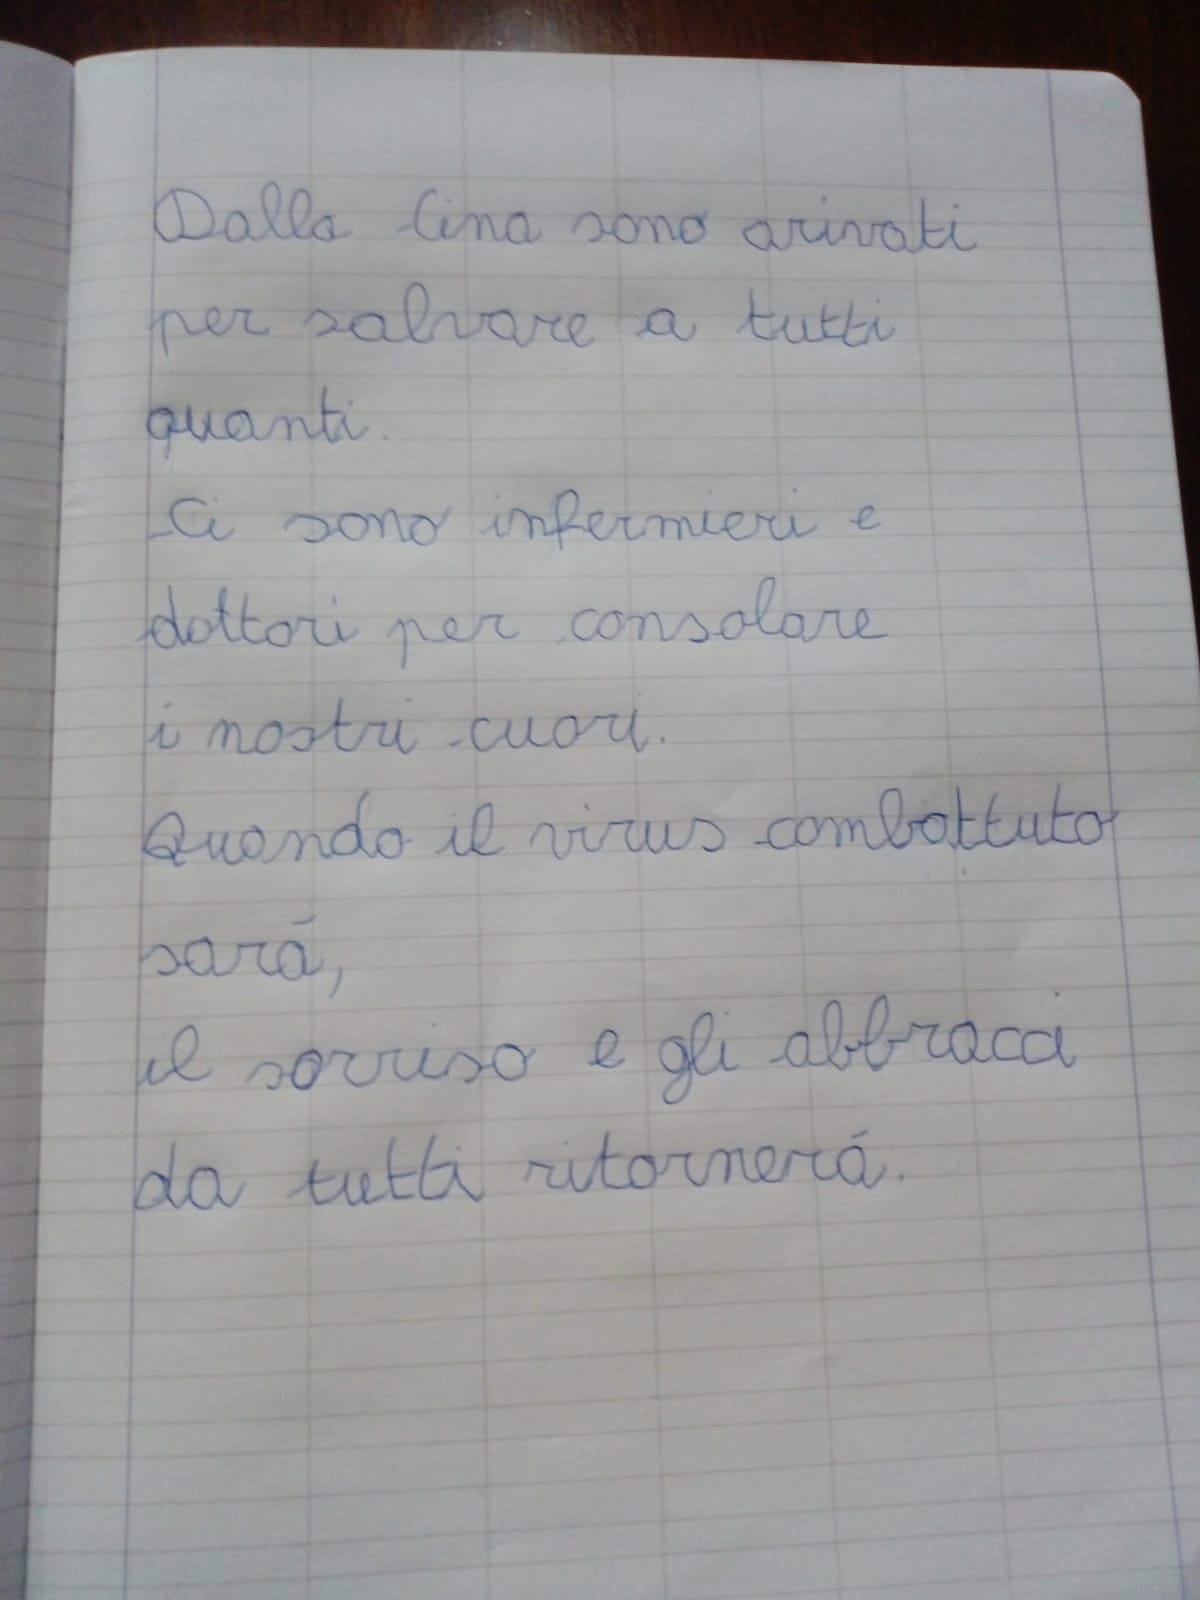 Dalla Cina sono arivati
per salvare a tutti
quanti.
Ci sono infermieri e
dottori per consolare
i nostri cuori.
Quando il virus combattuto
sará,
il sorriso e gli abbracci
da tutti ritornerá.